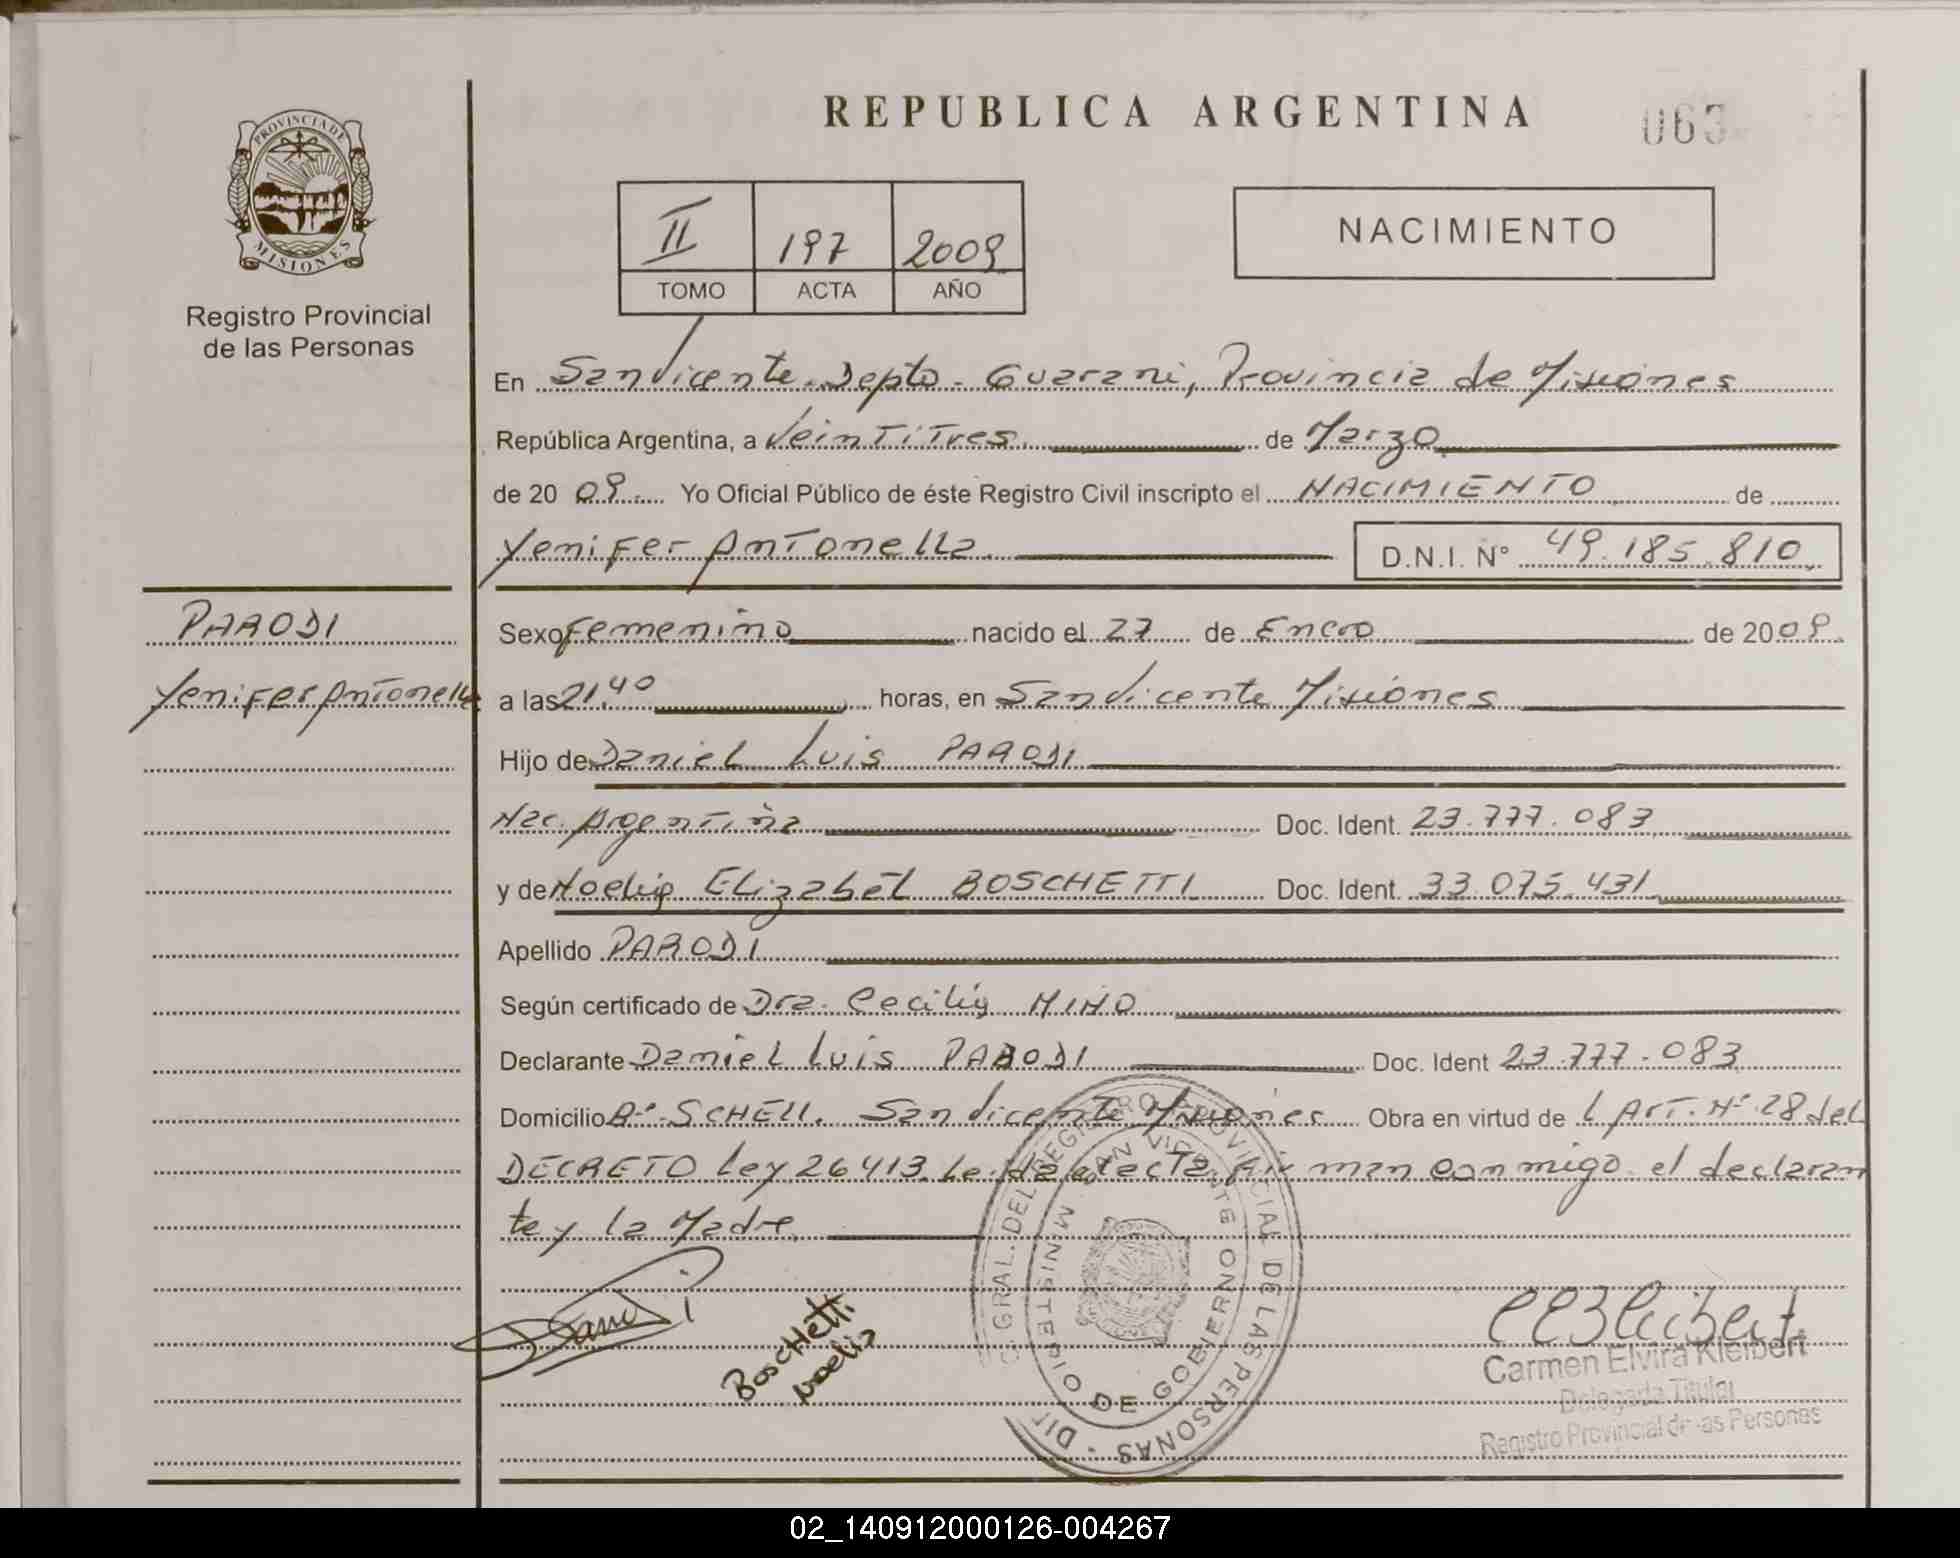 REPUBLICA ARGENTINA
063
PROVINCIA DE
MISIONES
Registro Provincial
de las Personas
II 197 2009
TOMO ACTA AÑO
NACIMIENTO
En San Vicente. Depto. Guarani, Provincia de Misiones
República Argentina, a Veintitres de Marzo
de 20 09 Yo Oficial Público de éste Registro Civil inscripto el NACIMIENTO de
Yenifer Antonella D.N.I. N° 49.185.810
PARODI
Yenifer Antonella
Sexo Femenino nacido el 27 de Enero de 2009
a las 21,40 horas, en San Vicente Misiones
Hijo de Daniel Luis PARODI
Nac. Argentina Doc. Ident. 23.777.083
y de Noelia Elizabet BOSCHETTI Doc. Ident. 33.075.431
Apellido PARODI
Según certificado de Dra. Cecilia MINO
Declarante Daniel Luis PARODI Doc. Ident 23.777.083
Domicilio B° SCHELL. San Vicente Misiones Obra en virtud de l Art. N° 28 del
DECRETO Ley 26413. Leida el acta firman conmigo el declaran
te y la Madre
Boschetti
Noelia
DIR. GRAL. DEL REGISTRO PROVINCIAL DE LAS PERSONAS
SAN VICENTE
MINISTERIO DE GOBIERNO
Carmen Elvira Kleibert
Delegada Titular
Registro Provincial de las Personas
02_140912000126-004267